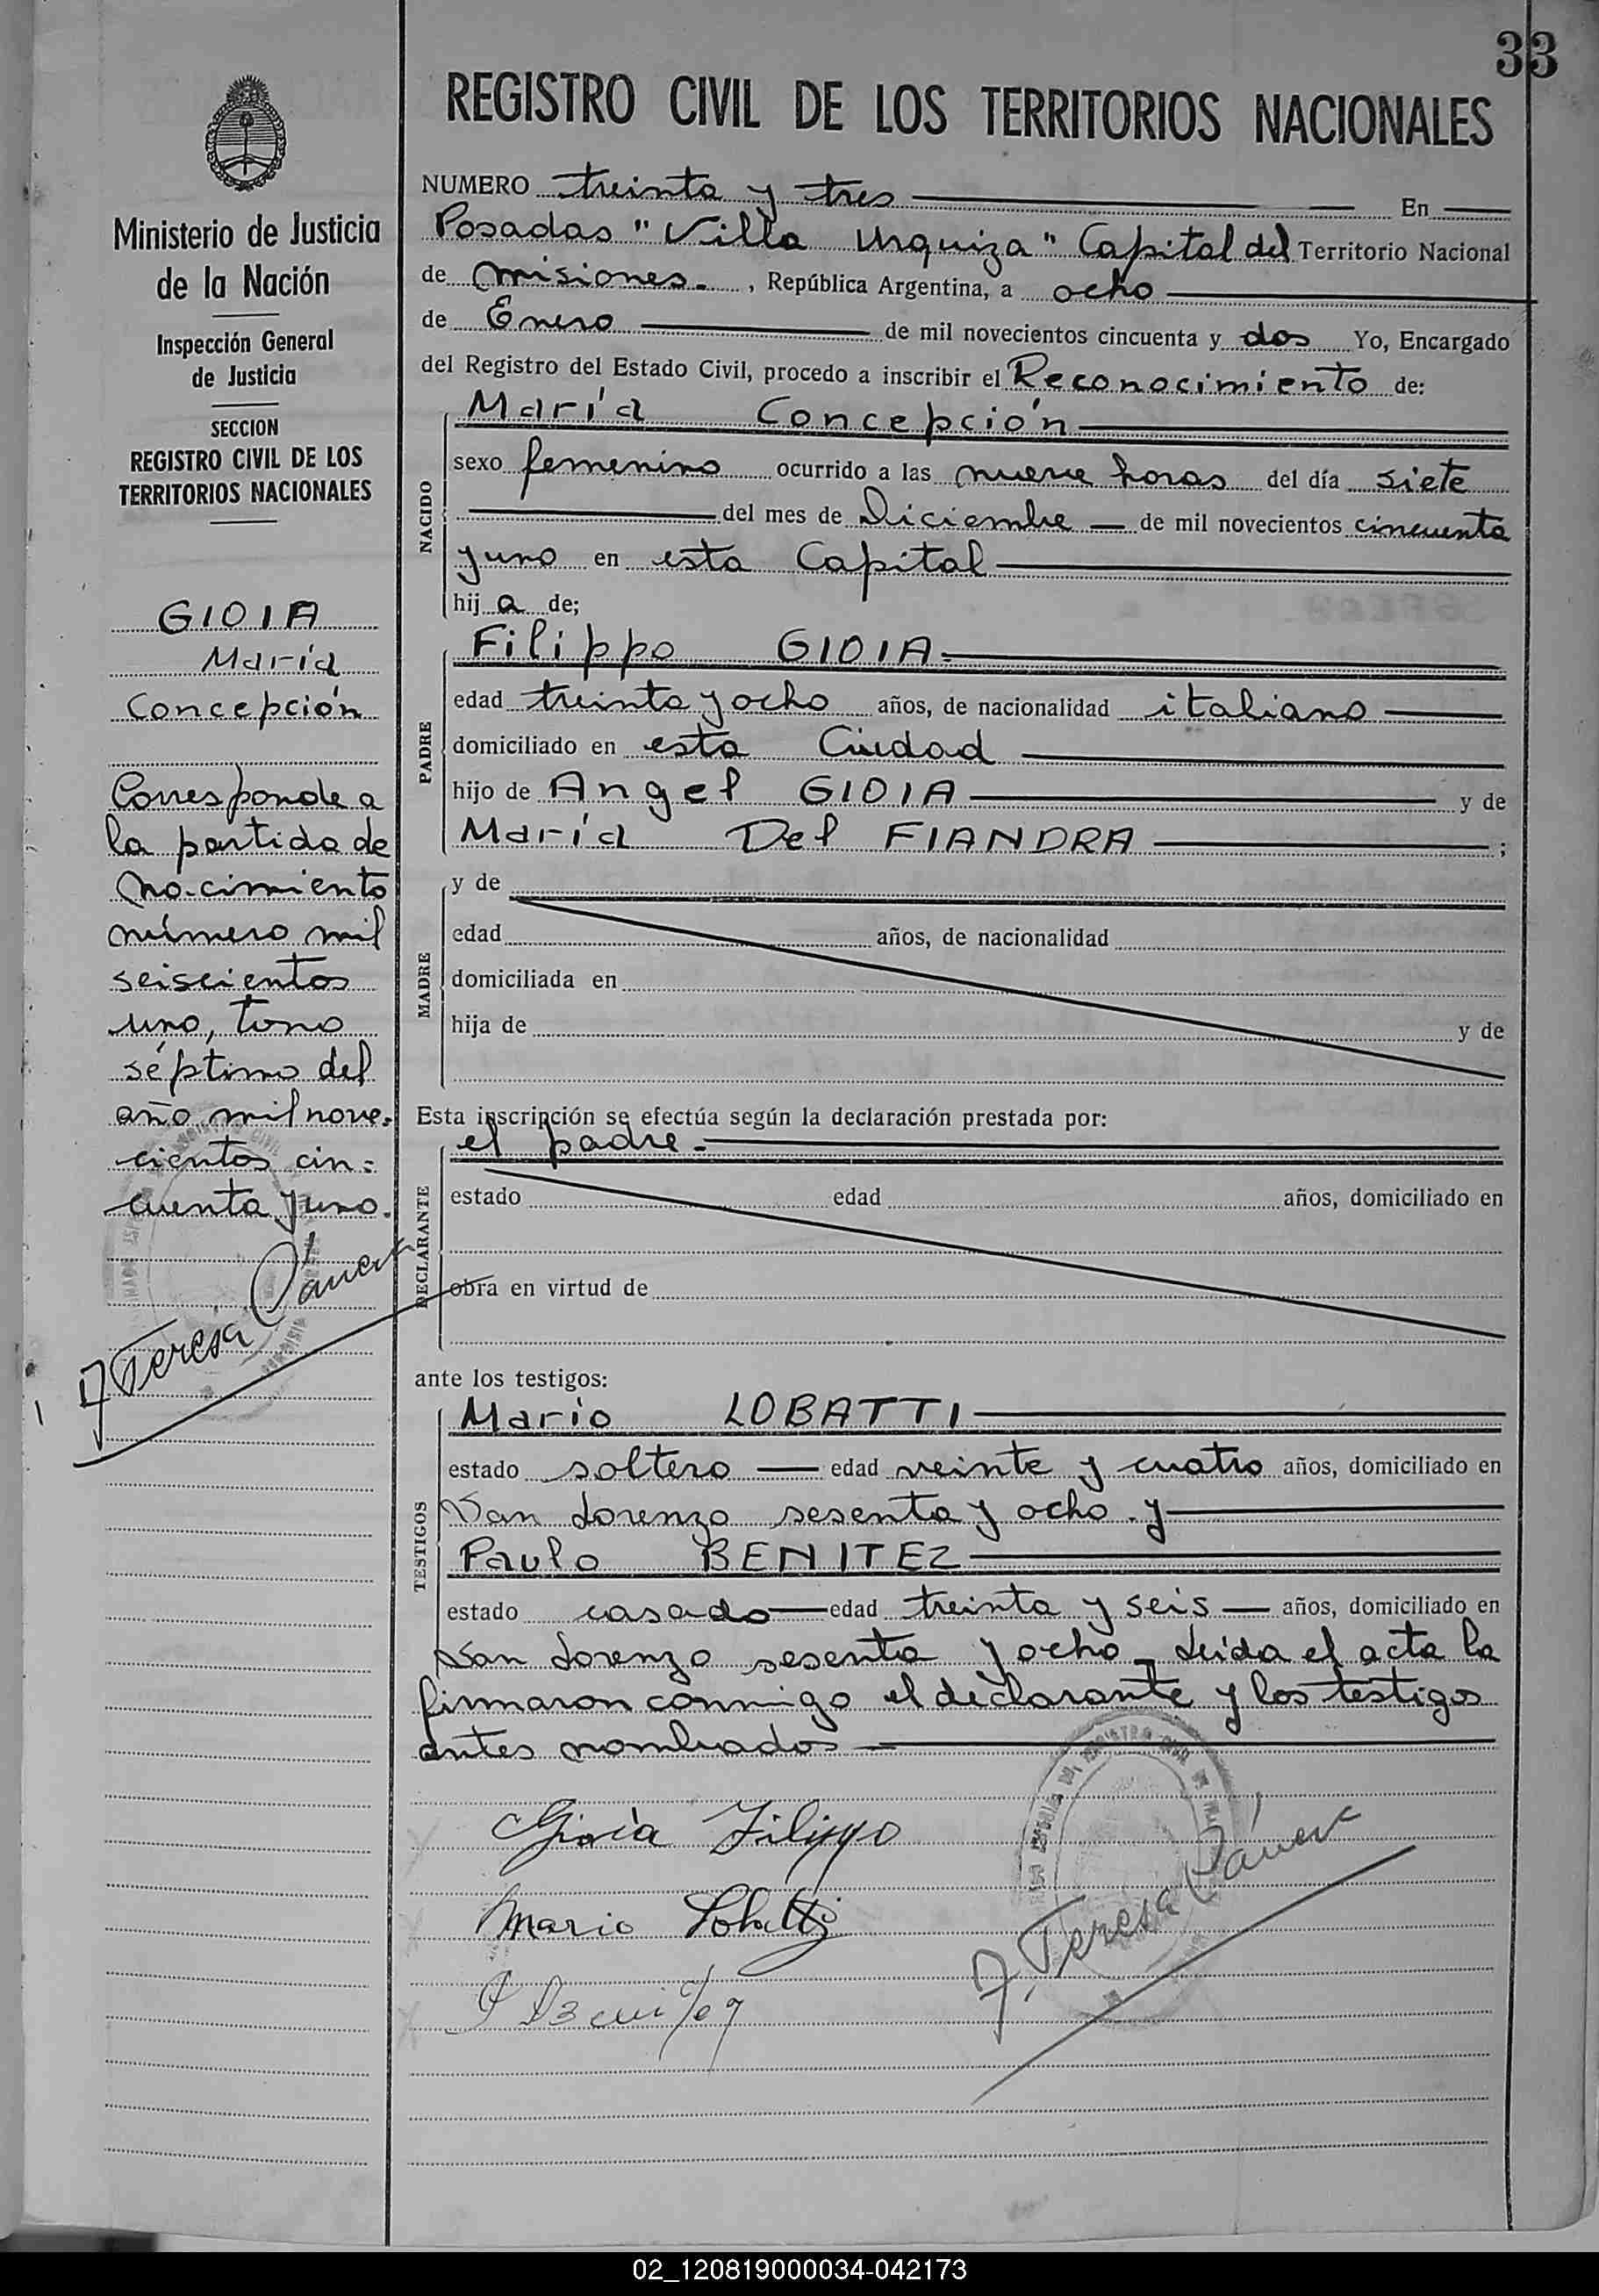 33
REGISTRO CIVIL DE LOS TERRITORIOS NACIONALES
Ministerio de Justicia
de la Nación
Inspección General
de Justicia
SECCION
REGISTRO CIVIL DE LOS
TERRITORIOS NACIONALES
GIOIA
María
Concepción
Corresponde a
la partida de
na-cimiento
número mil
seiscientos
uno, tomo
séptimo del
año mil nove-
cientos cin=
cuenta y uno.
NUMERO treinta y tres En
Posadas "Villa Urquiza" Capital del Territorio Nacional
de Misiones. , República Argentina, a ocho
de Enero de mil novecientos cincuenta y dos Yo, Encargado
del Registro del Estado Civil, procedo a inscribir el Reconocimiento de:
María Concepción
NACIDO
sexo femenino ocurrido a las nueve horas del día siete
del mes de Diciembre de mil novecientos cincuenta
y uno en esta Capital
hij a de;
Filippo GIOIA
PADRE
edad treinta y ocho años, de nacionalidad italiano
domiciliado en esta Ciudad
hijo de Angel GIOIA y de
María Del FIANDRA ;
MADRE
y de
edad años, de nacionalidad
domiciliada en
hija de y de
Esta inscripción se efectúa según la declaración prestada por:
el padre.
DECLARANTE
estado edad años, domiciliado en
obra en virtud de
ante los testigos:
Mario LOBATTI
TESTIGOS
estado soltero edad veinte y cuatro años, domiciliado en
San Lorenzo sesenta y ocho y
Paulo BENITEZ
estado casado edad treinta y seis años, domiciliado en
San Lorenzo sesenta y ocho - Leida el acta la
firmaron conmigo el declarante y los testigos
antes nombrados
Gioia Filippo
Mario Lobatti
02_120819000034-042173